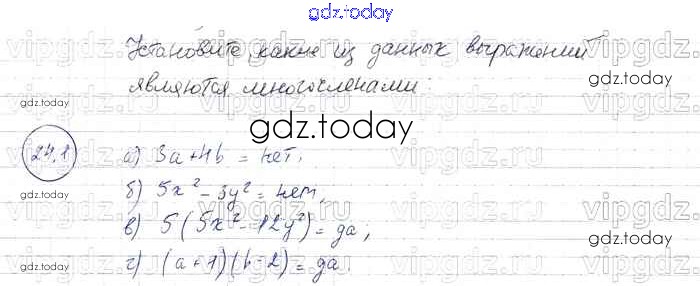 gdz.today
Установите, какие из данных выражений
являются многочленами:
gdz.today
gdz.today
gdz.today
24.1
а) 3a+4b = нет,
б) 5x² - 3y² = нет,
в) 5(5x² - 12y²) = да;
г) (a+1)(b-2) = да.
gdz.today
gdz.today
gdz.today
gdz.today
vipgdz